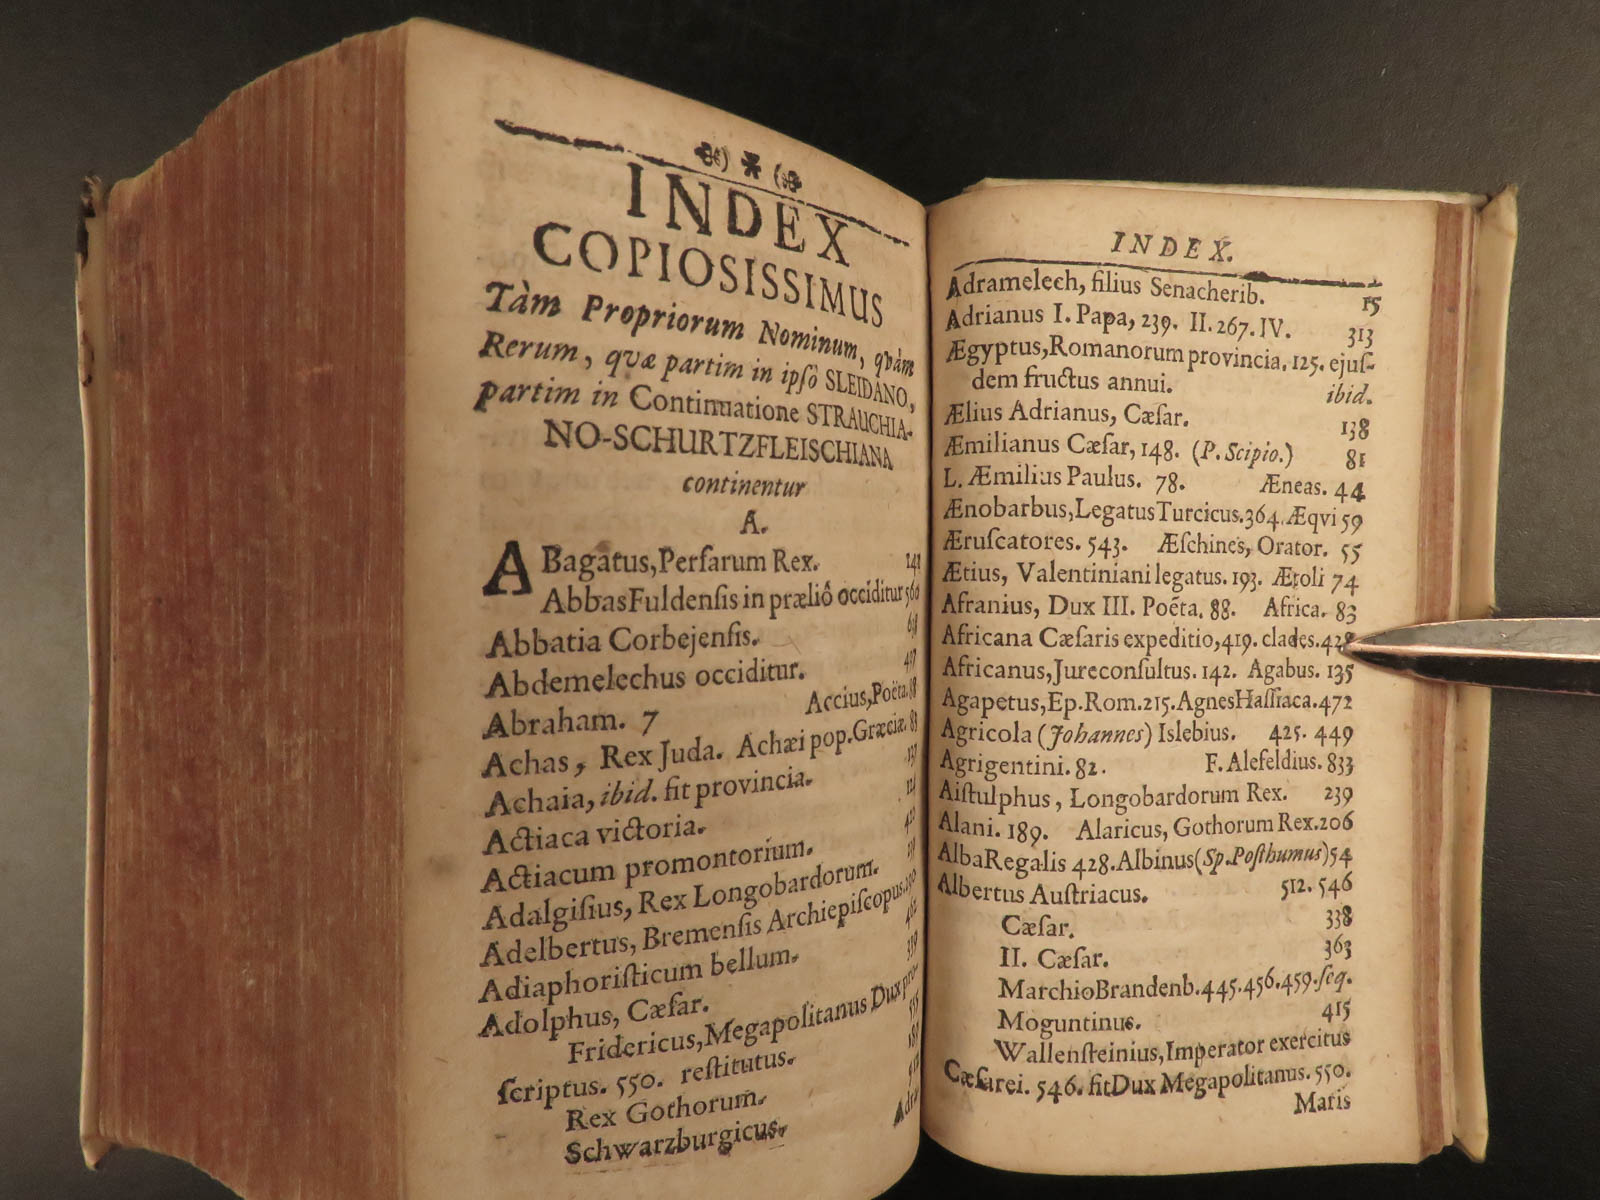 INDEX
COPIOSISSIMUS
Tàm Propriorum Nominum, qvàm
Rerum, qvæ partim in ipſô SLEIDANO,
partim in Continuatione STRAUCHIA-
NO-SCHURTZFLEISCHIANA
continentur
A.
ABagatus, Perſarum Rex. 242
Abbas Fuldenſis in præliô occiditur 560
Abbatia Corbejenſis. 638
Abdemelechus occiditur. 417
Abraham. 7 Accius, Poëta. 88
Achas, Rex Juda. Achæi pop. Græciæ. 83
Achaia, ibid. fit provincia. 137
Actiaca victoria. 124
Actiacum promontorium. 421
Adalgiſius, Rex Longobardorum.
Adelbertus, Bremenſis Archiepiſcopus.
Adiaphoriſticum bellum. 462
Adolphus, Cæſar. 339
Fridericus, Megapolitanus Dux pro-
ſcriptus. 550. reſtitutus. 555
Rex Gothorum. 189
Schwarzburgicus. 512
INDEX.
Adramelech, filius Senacherib. 15
Adrianus I. Papa, 239. II. 267. IV. 313
Ægyptus, Romanorum provincia. 125. ejuſ-
dem fructus annui. ibid.
Ælius Adrianus, Cæſar. 138
Æmilianus Cæſar, 148. (P. Scipio.) 81
L. Æmilius Paulus. 78. Æneas. 44
Ænobarbus, Legatus Turcicus. 364. Æqvi 59
Æruſcatores. 543. Æſchines, Orator. 55
Ætius, Valentiniani legatus. 193. Ætoli 74
Afranius, Dux III. Poëta. 88. Africa. 83
Africana Cæſaris expeditio, 419. clades. 428
Africanus, Jureconſultus. 142. Agabus. 135
Agapetus, Ep. Rom. 215. Agnes Haſſiaca. 472
Agricola (Johannes) Islebius. 425. 449
Agrigentini. 82. F. Alefeldius. 833
Aiſtulphus, Longobardorum Rex. 239
Alani. 189. Alaricus, Gothorum Rex. 206
Alba Regalis 428. Albinus (Sp. Poſthumus) 54
Albertus Auſtriacus. 512. 546
Cæſar. 338
II. Cæſar. 363
Marchio Brandenb. 445. 456. 459. ſeq.
Moguntinus. 415
Wallenſteinius, Imperator exercitus
Cæſarei. 546. fit Dux Megapolitanus. 550.
Matis